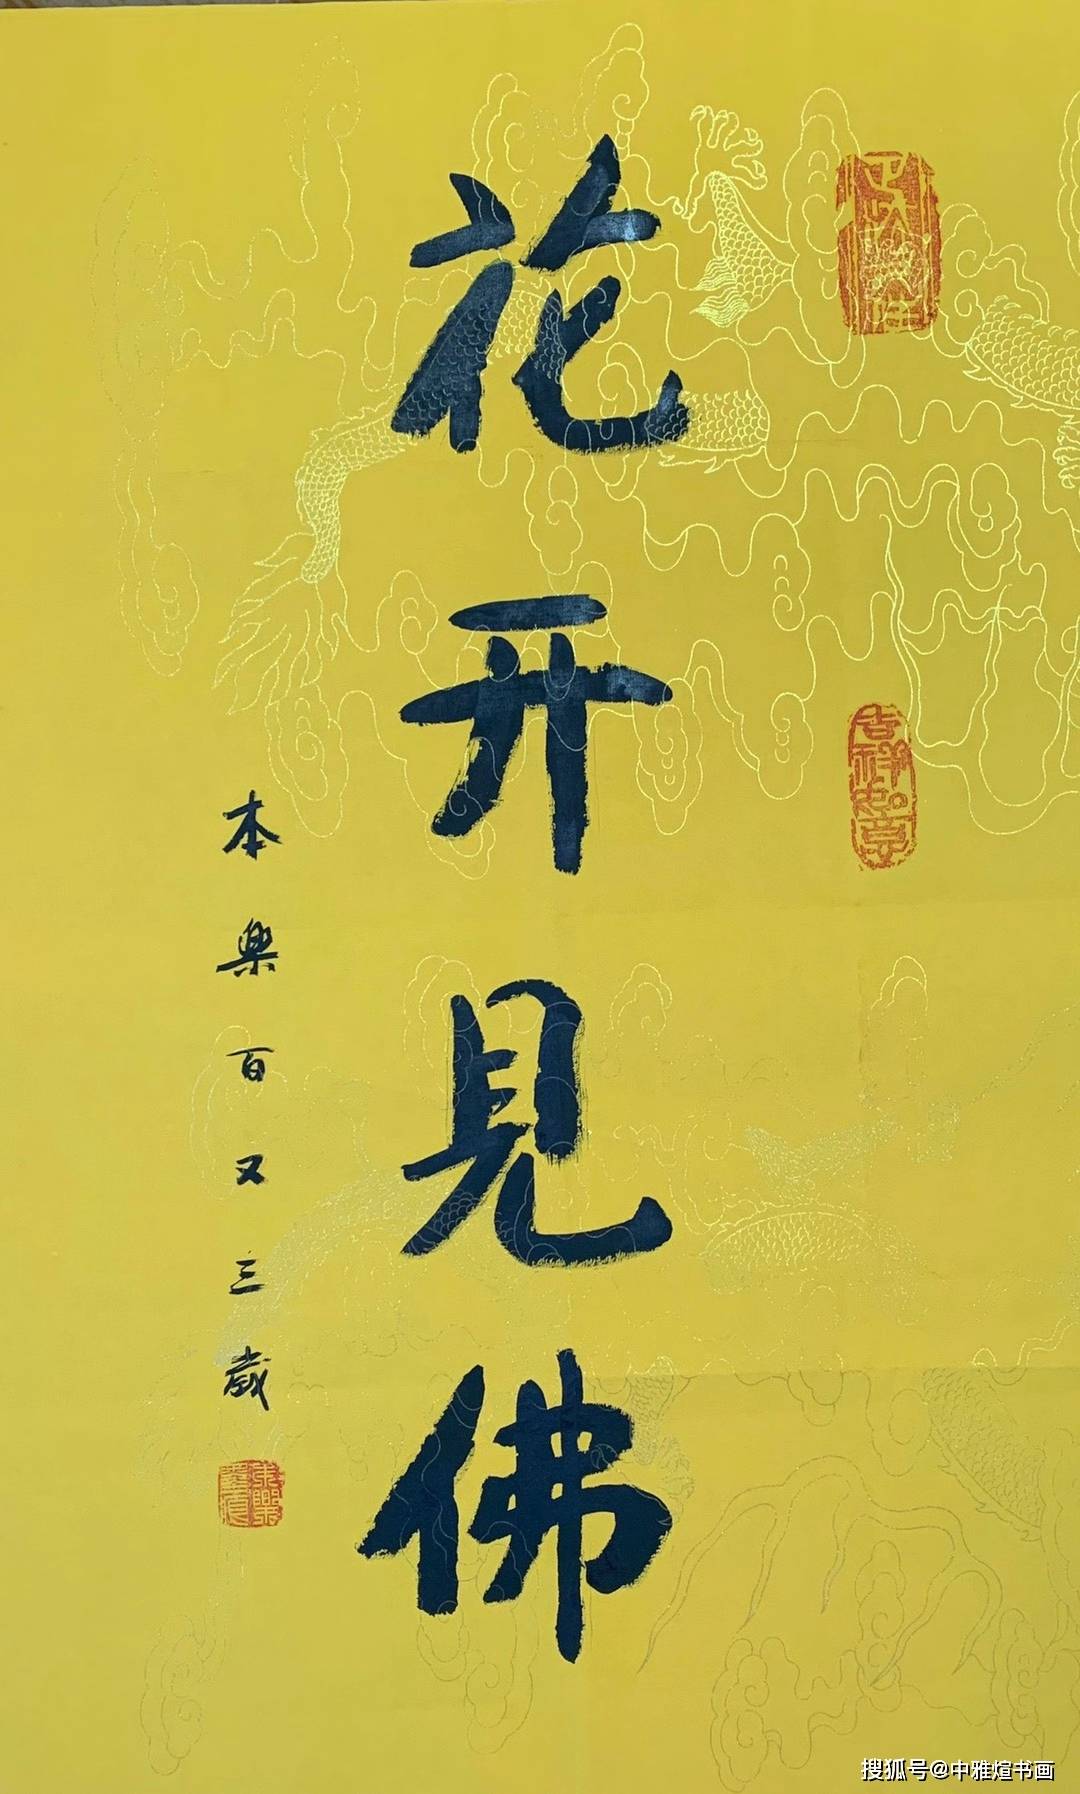 花开見佛
本樂百又三歲
吉祥如意
搜狐号@中雅煊书画